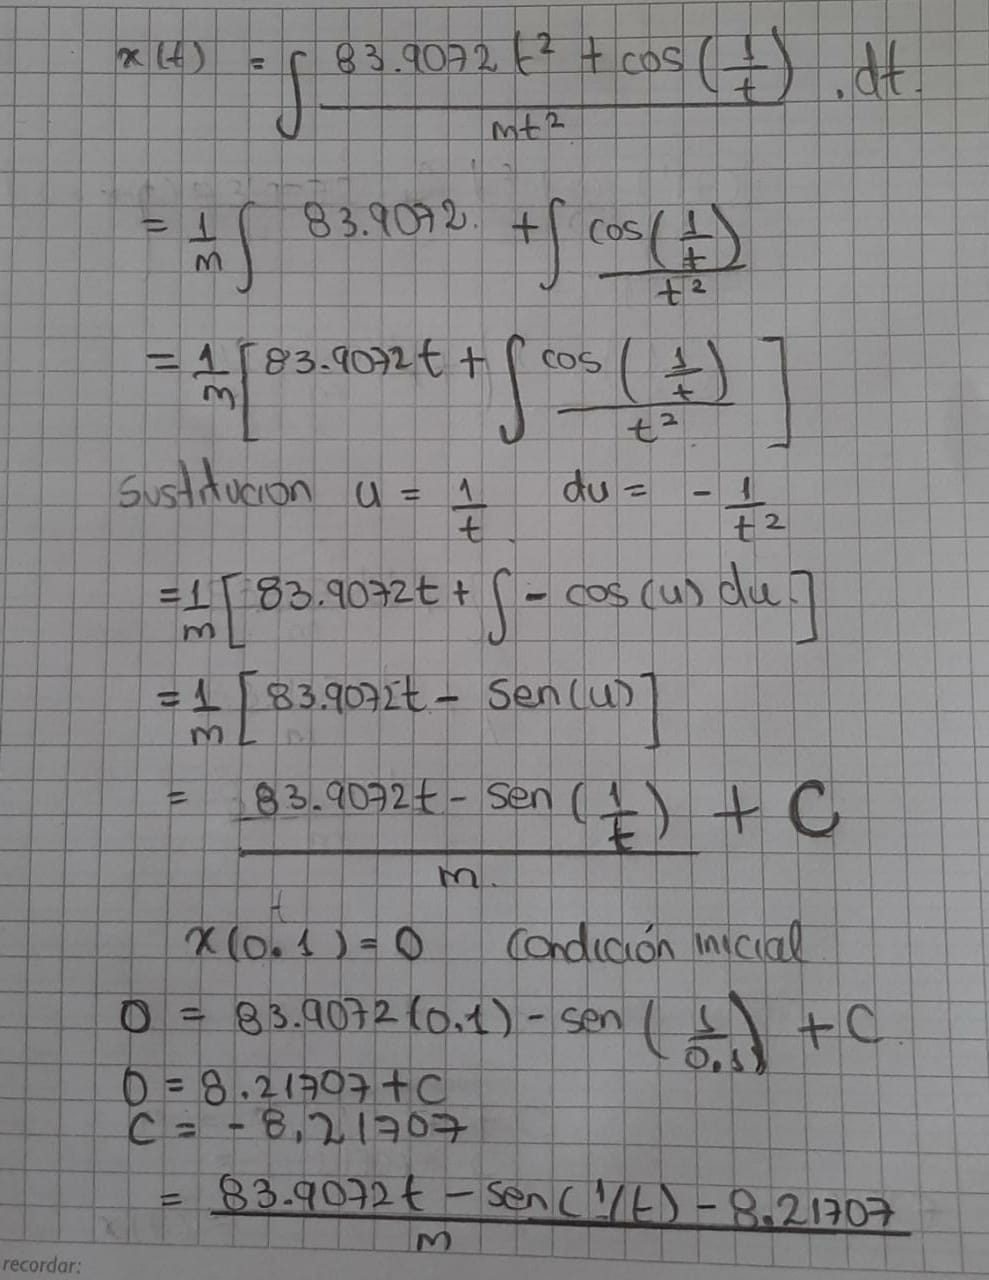 x(t) = ∫ (83.9072 t² + cos(1/t)) / mt² . dt.
= 1/m ∫ 83.9072. + ∫ cos(1/t) / t²
= 1/m [83.9072t + ∫ cos(1/t) / t²]
Sustitución u = 1/t du = - 1/t²
= 1/m [83.9072t + ∫ - cos(u) du.]
= 1/m [83.9072t - Sen(u)]
= (83.9072t - Sen(1/t)) / m. + C
x(0.1) = 0 Condición inicial
0 = 83.9072(0.1) - sen(1/0.1) + C.
0 = 8.21707 + C
C = - 8.21707
= (83.9072t - sen(1/t) - 8.21707) / m
recordar: